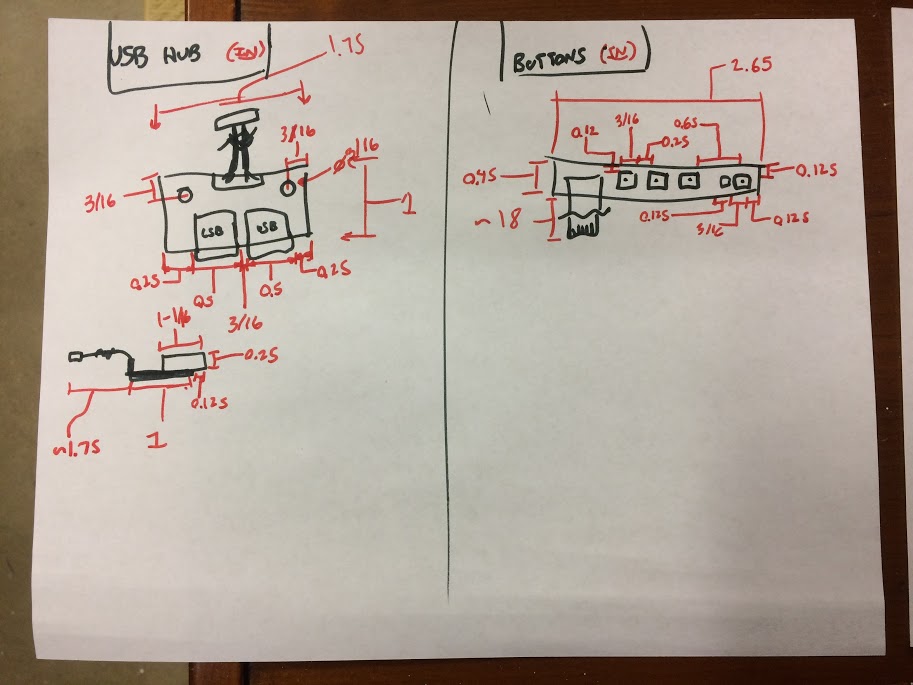 USB HUB (IN)
1.75
3/16
3/16
1
3/16
USB
USB
0.25
0.5
0.5
0.25
3/16
0.25
0.125
~1.75
1
BUTTONS (IN)
2.65
0.12
3/16
0.65
0.25
0.45
0.125
~18
0.125
3/16
0.125